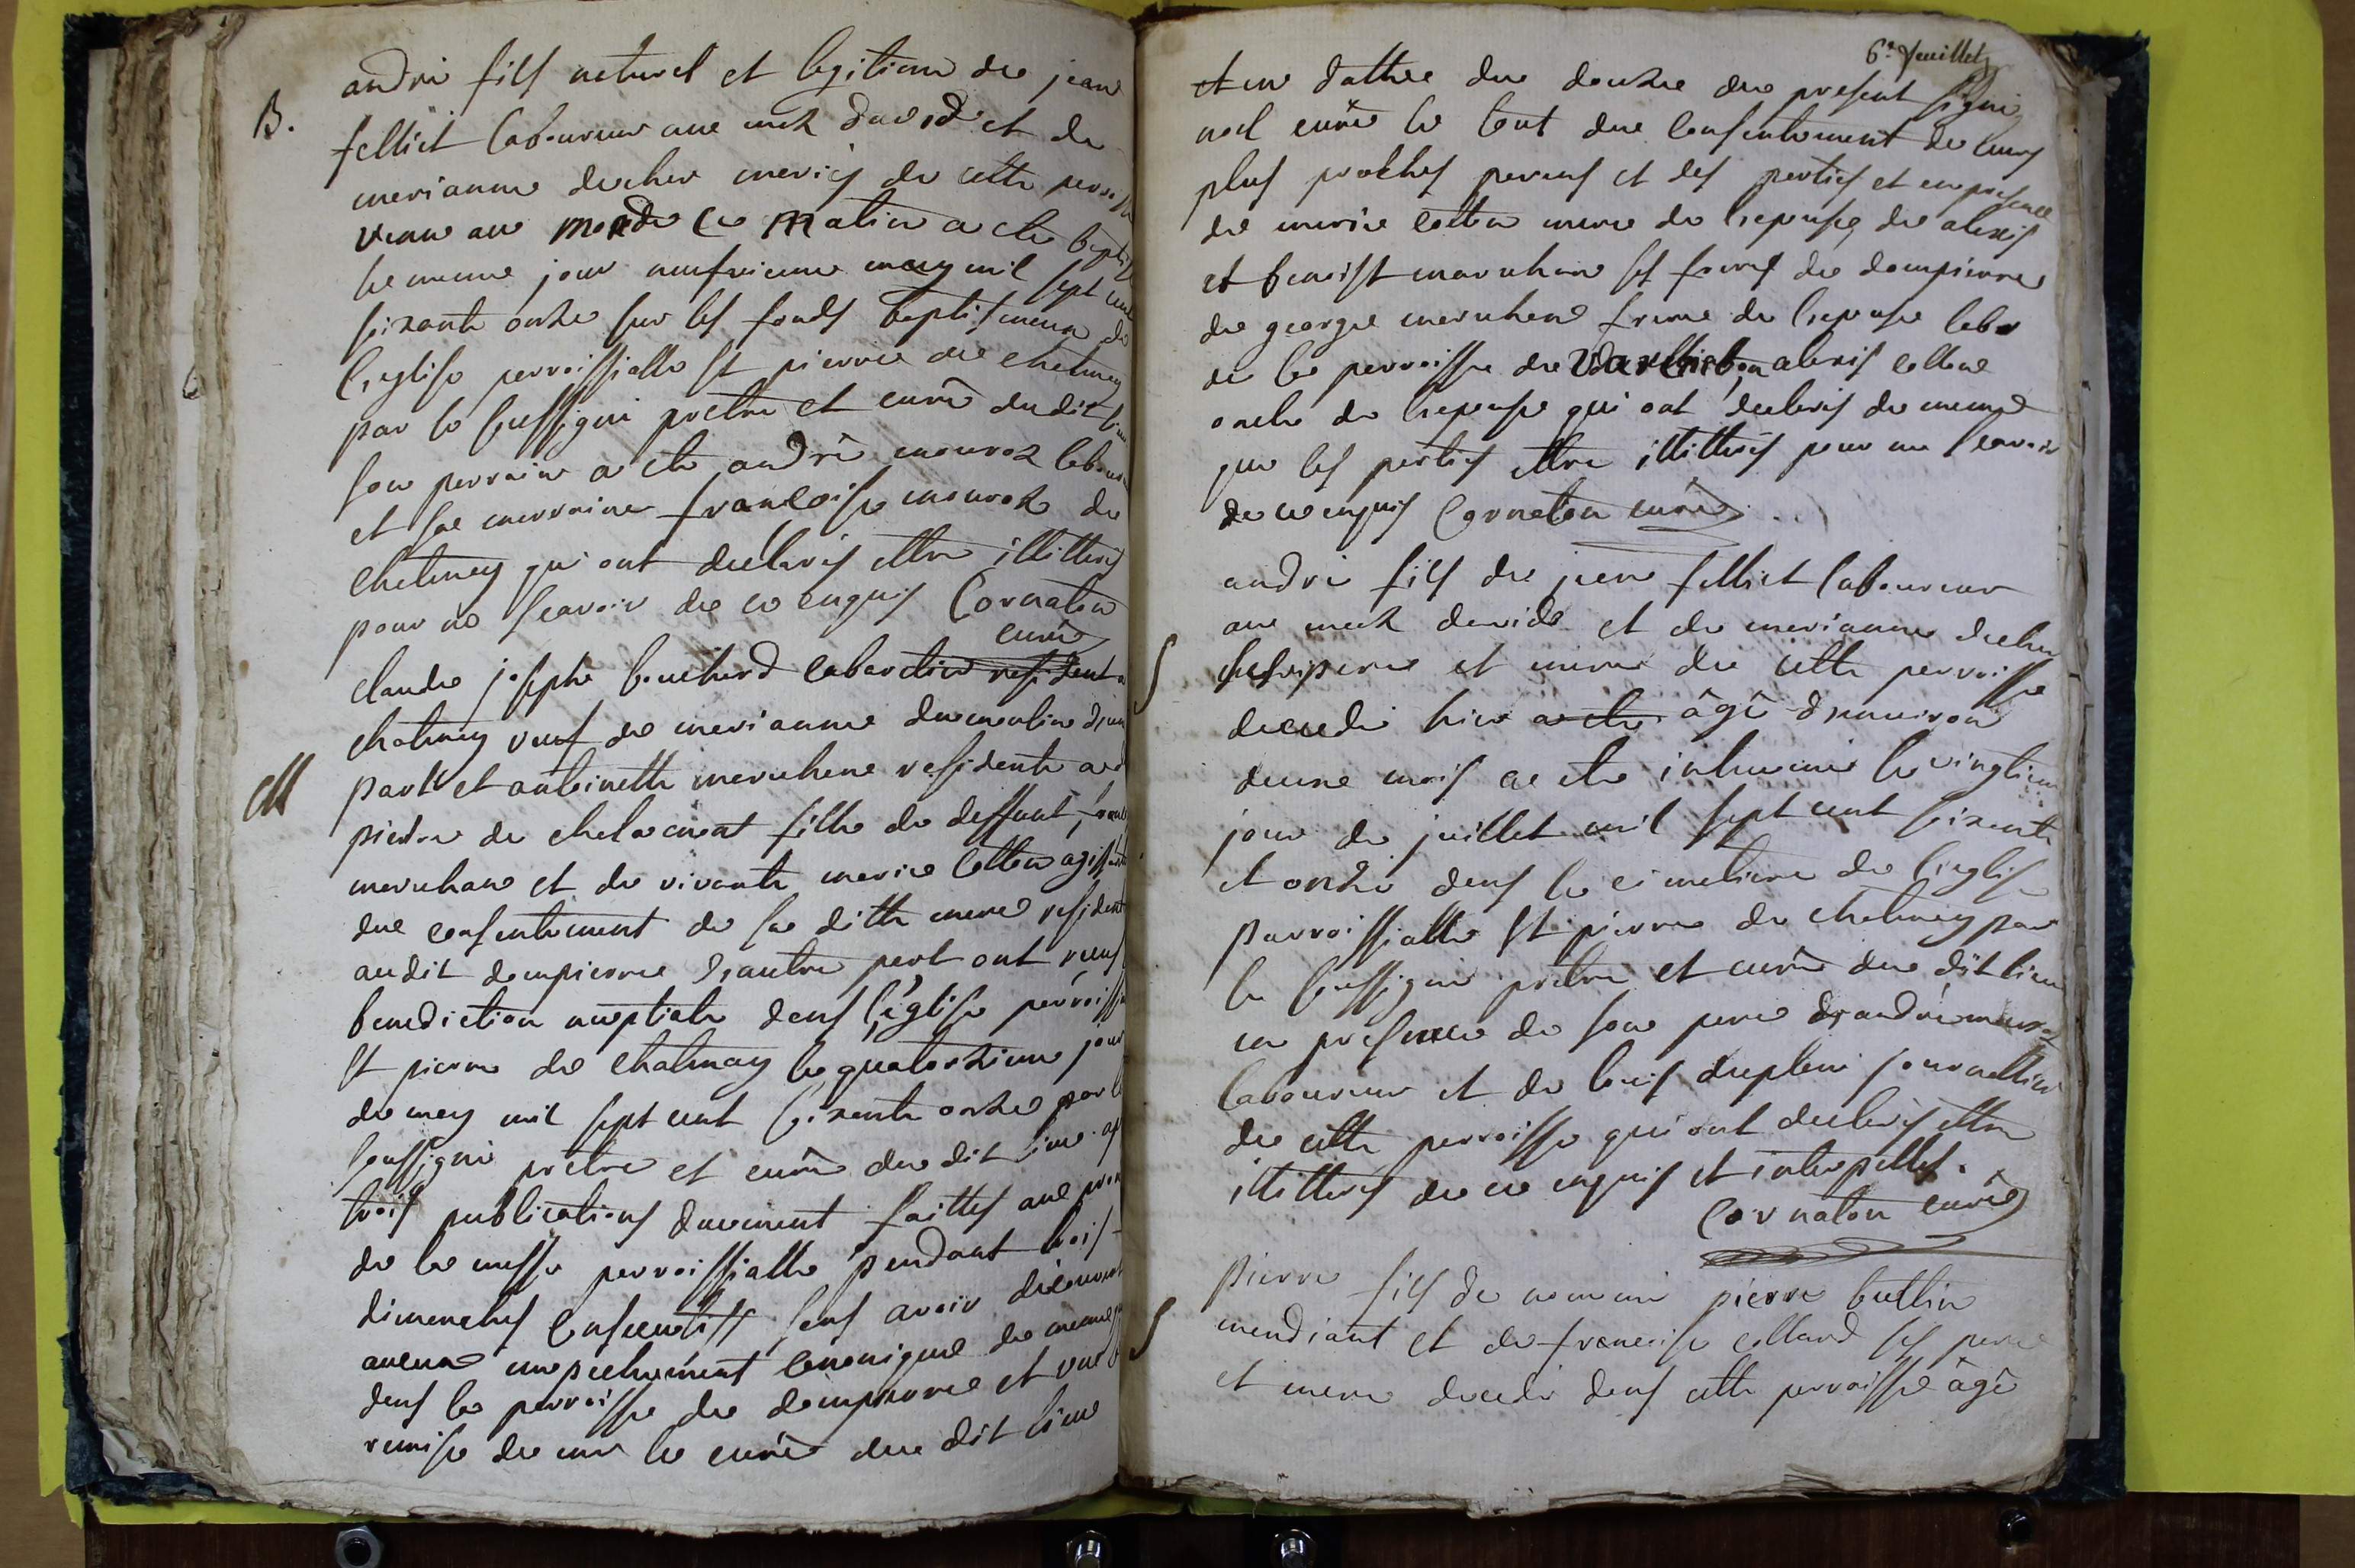 B.
andré fils naturel et legitime de jean
felliet laboureur aux mck david et de
marianne decher mariés de cette parroisse
venu au monde ce matin a ete baptisé
le meme jour neufvieme may mil sept cent
soixante onze sur les fonds baptismeaux de
l'eglise parroissialle st pierre de chatenay
par le soussigné pretre et curé du dit lieu
son parrain a ete andré mouroz laboureur
et sa marraine francoise mouroz de
chatenay qui ont declarés ettre illitterés
pour ne scavoir de ce enquis Cornaton
curé
claude josephe bouchard cabaretier resident a
chatenay veuf de marianne dumoulin d'une
M
part et antoinette maruhene residente a
pierre de chala mont fille de deffunt
maruhene et de vivante marie cotton agissante
du consentement de sa ditte mere resident
audit dompierre d'autre part ont reçus
benediction nuptiale dans l'église parroissialle
st pierre de chatenay le quatorzieme jour
de may mil sept cent soixante onze par le
soussigné prètre et curé du dit lieu
trois publications duement faittes aux prones
de la messe parroissialle pendant trois
dimenches consecutifs sans avoir découvert
aucune empechement canonique de meme
dans la parroisse de dompierre et vue
remise de mr le curé du dit lieu
6e feuillet
et en datte du douze du present signé
noel curé le tout du consentement de leurs
plus proches parens et des parties et en presence
de marie cotton mere de l'epouse, de alexis
et benoist maruhene ses freres de dompierre
de george maruhene frere de l'epouse labr
de la parroisse de alexis cottone
oncle de l'epouse qui ont declarés de meme
que les parties ettre illitterés pour ne scavoir
de ce enquis Cornaton curé
andré fils de jean felliet laboureur
S
aux mck david et de marianne decher
ses pere et mere de cette parroisse
decedé hier a ete âgé d'environ
deux mois a ete inhumé le vingtieme
jour de juillet mil sept cent soixante
et onze dans le cimetiere de l'eglise
parroissialle st pierre de chatenay par
le soussigné pretre et curé du dit lieu
en presence de son pere d'andré mouroz
laboureur et de louis duplein journallier
de cette parroisse qui ont declarés ettre
illitterés de ce enquis et interpellés.
Cornaton curé
pierre fils de nommé pierre buttin
S
mendiant et de francoise collard ses pere
et mere decedé dans cette parroisse âgé